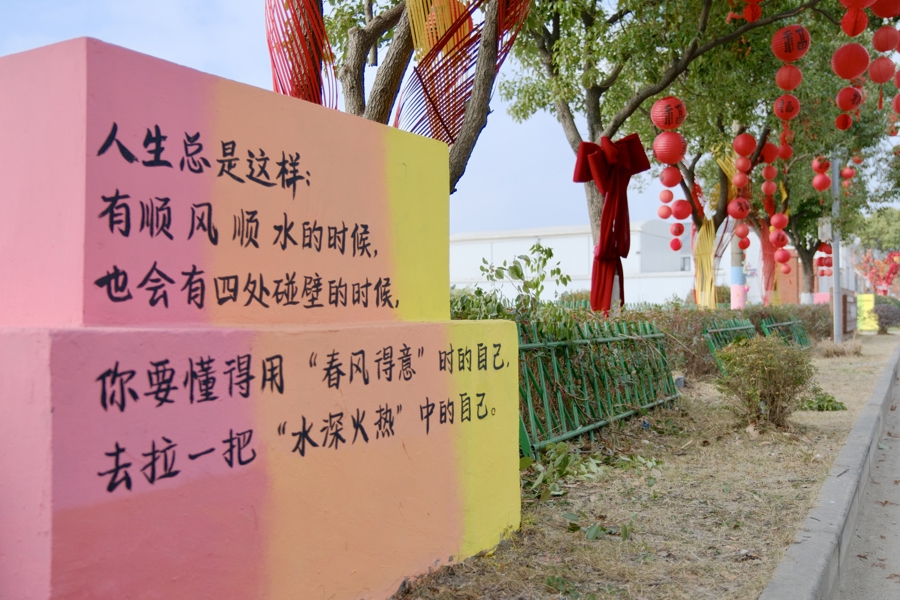 人生总是这样:
有顺风顺水的时候,
也会有四处碰壁的时候,
你要懂得用“春风得意”时的自己,
去拉一把“水深火热”中的自己。